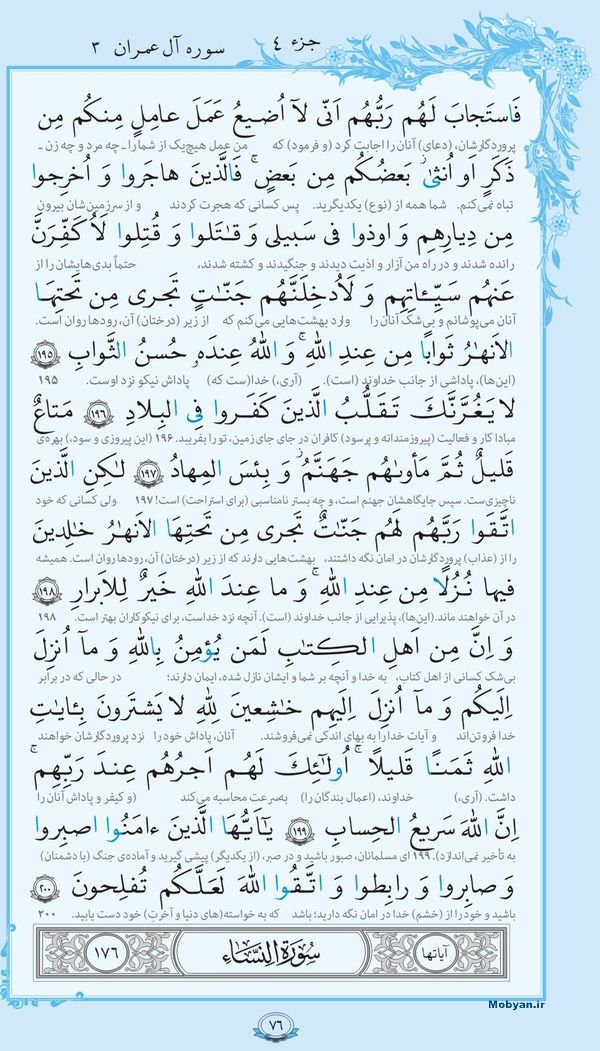 جزء ۴ سوره آل عمران ۳
فَاستَجابَ لَهُم رَبُّهُم اَنّى لآ اُضيعُ عَمَلَ عامِلٍ مِنكُم مِن
پروردگارشان، (دعای) آنان را اجابت کرد (و فرمود) که من عمل هیچ‌یک از شما را ـ چه مرد و چه زن ـ
ذَكَرٍ اَو اُنثىٰ بَعضُكُم مِن بَعضٍ فَالَّذينَ هاجَروا وَ اُخرِجوا
تباه نمی‌کنم. شما همه از (نوع) یکدیگرید. پس کسانی که هجرت کردند و از سرزمین‌شان بیرون
مِن دِيارِهِم وَ اوذوا فى سَبيلى وَ قٰتَلوا وَ قُتِلوا لَاُكَفِّرَنَّ
رانده شدند و در راه من آزار و اذیت دیدند و جنگیدند و کشته شدند، حتماً بدی‌هایشان را از
عَنهُم سَيِّـٔاتِهِم وَ لَاُدخِلَنَّهُم جَنّٰتٍ تَجرى مِن تَحتِهَا
آنان می‌پوشانم و بی‌شک آنان را وارد بهشت‌هایی می‌کنم که از زیر (درختان) آن، رودها روان است.
الاَنهٰرُ ثَوابًا مِن عِندِ اللهِ وَ اللهُ عِندَهو حُسنُ الثَّوابِ ۱۹۵
(این‌ها)، پاداشی از جانب خداوند (است). (آری،) خدا(ست که) پاداش نیکو نزد اوست. ۱۹۵
لا يَغُرَّنَّكَ تَقَلُّبُ الَّذينَ كَفَروا فِى البِلادِ ۱۹۶ مَتاعٌ
مبادا کار و فعالیت (پیروزمندانه و پرسود) کافران در جای جای زمین، تو را بفریبد. ۱۹۶ (این پیروزی و سود)، بهره‌ی
قَليلٌ ثُمَّ مَأوىٰهُم جَهَنَّمُ وَ بِئسَ المِهادُ ۱۹۷ لٰكِنِ الَّذينَ
ناچیزی‌ست. سپس جایگاهشان جهنم است، و چه بستر نامناسبی (برای استراحت) است! ۱۹۷ ولی کسانی که خود
اتَّقَوا رَبَّهُم لَهُم جَنّٰتٌ تَجرى مِن تَحتِهَا الاَنهٰرُ خٰلِدينَ
را از (عذاب) پروردگارشان در امان نگه داشتند، بهشت‌هایی دارند که از زیر (درختان) آن، رودها روان است. همیشه
فيها نُزُلًا مِن عِندِ اللهِ وَ ما عِندَ اللهِ خَيرٌ لِلاَبرارِ ۱۹۸
در آن خواهند ماند. (این‌ها)، پذیرایی از جانب خداوند (است). آنچه نزد خداست، برای نیکوکاران بهتر است. ۱۹۸
وَ اِنَّ مِن اَهلِ الكِتٰبِ لَمَن يُؤمِنُ بِاللهِ وَ مآ اُنزِلَ
بی‌شک کسانی از اهل کتاب، به خدا و آنچه بر شما و ایشان نازل شده، ایمان دارند؛ در حالی که در برابر
اِلَيكُم وَ مآ اُنزِلَ اِلَيهِم خٰشِعينَ لِلهِ لا يَشتَرونَ بِـٔايٰتِ
خدا فروتن‌اند و آیات خدا را به بهای اندکی نمی‌فروشند. آنان، پاداش خود را نزد پروردگارشان خواهند
اللهِ ثَمَنًا قَليلًا اُولٰئِكَ لَهُم اَجرُهُم عِندَ رَبِّهِم
داشت. (آری،) خداوند، (اعمال بندگان را) به‌سرعت محاسبه می‌کند (و کیفر و پاداش آنان را
اِنَّ اللهَ سَريعُ الحِسابِ ۱۹۹ يٰٓاَيُّهَا الَّذينَ ءامَنُوا اصبِروا
به تأخیر نمی‌اندازد). ۱۹۹ ای مسلمانان، صبور باشید و در صبر، (از یکدیگر) پیشی گیرید و آماده‌ی جنگ (با دشمنان)
وَ صابِروا وَ رابِطوا وَ اتَّقُوا اللهَ لَعَلَّكُم تُفلِحونَ ۲۰۰
باشید و خود را از (خشم) خدا در امان نگه دارید؛ باشد که به خواسته(های دنیا و آخرتِ) خود دست یابید. ۲۰۰
آیاتها سُورَةُ النِّسَاءِ ۱۷۶
Mobyan.ir
۷۶